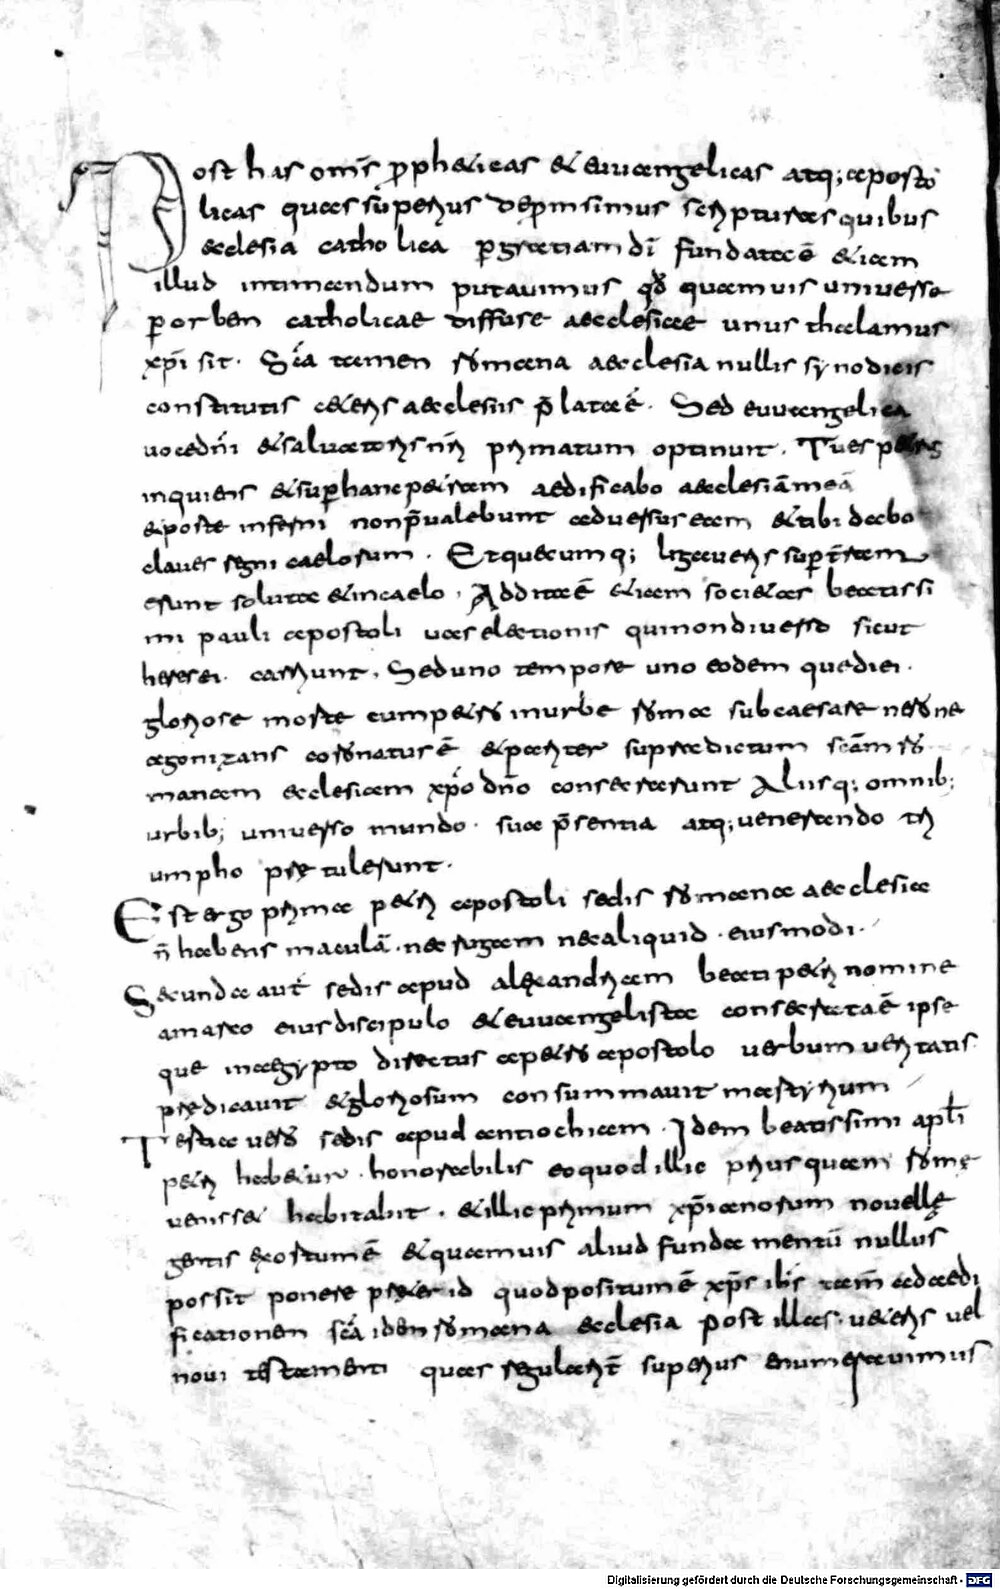 Post has om̅s ꝓphᴇticas et euuangelicas atq; aposto
licas quas superius deꝓmsimus scripturas quibus
ecclesia catholica ꝑ gratiam di̅ fundata e̅ etiam
illud intimandum putauimus qđ quamuis uniuerse
ꝑ orben catholicae diffuse aecclesiae unus thalamus
xp̅i sit. Sc̅a tamen romana aecclesia nullis synodicis
constitutis ceteris aecclesiis p̅lata e̅. Sed euuangelica
uoce dn̅i et saluatoris nr̅i primatum optinuit. Tu es petrus
inquiens et suꝑ hanc petram aedificabo aecclesia̅ mea̅
et porte inferni non p̅ualebunt aduersus eam et tibi dabo
claues regni caelorum. Et quecumq; ligaueris suꝑ t̅ram
erunt soluta et in caelo. Addita e̅ etiam societas beatissi
mi pauli apostoli uas electionis qui non diuerso sicut
heresei. garriunt. Sed uno tempore uno eodem quediei.
gloriose morte cum petro in urbe roma sub caesare nerone
agonizans coronatus e̅ et pariter supradictum sc̅am ro
manam ecclesiam xp̅o dn̅o consecrarunt Aliisq; omnib;
urbib; uniuerso mundo. sua p̅sentia atq; uenerando tri
umpho pretulerunt.
Est ergo prima petri apostoli sedis romana aecclesia
n̅ habens macula̅. nec rugam nec aliquid. eiusmodi.
Secunda aut̅ sedis apud alexandriam beati petri nomine
a marco eius discipulo et euuangelista consecrata e̅ ipse
que in aegypto directus a petro apostolo uerbum ueritatis
predicauit et gloriosum consummauit martyrium
Tertia uero sedis apud antiochiam. Idem beatissimi apl̅i
petri habetur. honorabilis eo quod illic prius quam rome
uenisset habitabit. et illic primum xp̅ianorum nouelle
gentis exortum e̅ et quamuis aliud fundamentu̅ nullus
possit ponere preter id quod positum e̅ xp̅s ih̅s tam̅ ad aedi
ficationen sc̅a iden romana ecclesia post illas. ueteris uel
noui testamenti quas regularit̅ superius enumerauimus
Digitalisierung gefördert durch die Deutsche Forschungsgemeinschaft - DFG